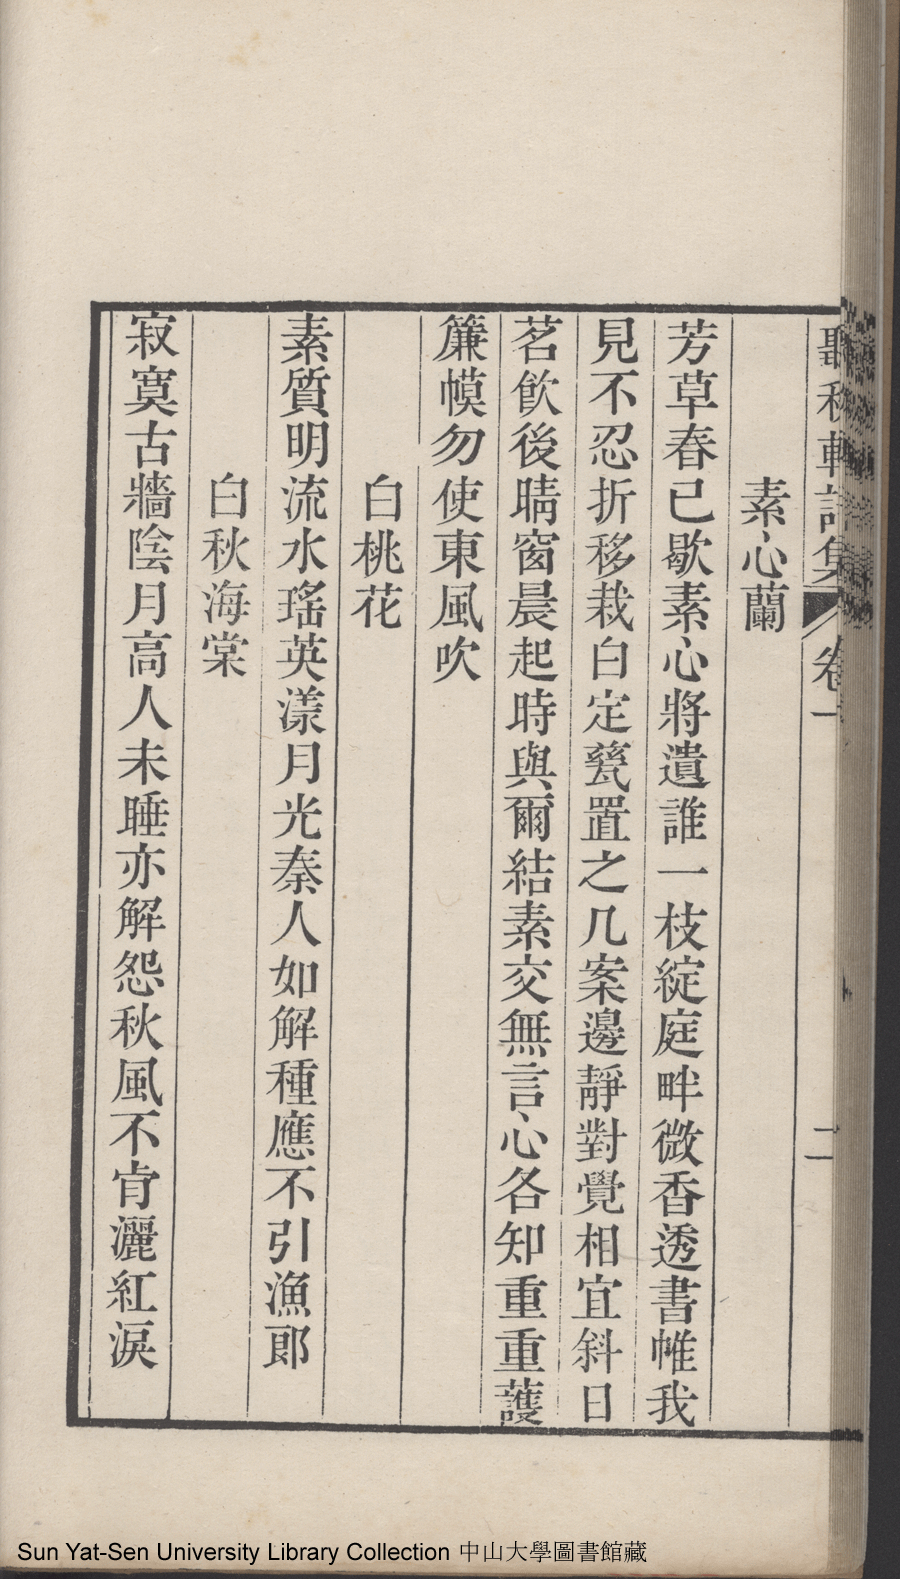 聽秋軒詩集 卷一 二
素心蘭
芳草春已歇素心將遺誰一枝綻庭畔微香透書帷我
見不忍折移栽白定甆置之几案邊靜對覺相宜斜日
茗飲後晴窗晨起時與爾結素交無言心各知重重護
簾幙勿使東風吹
白桃花
素質明流水瑤英漾月光秦人如解種應不引漁郎
白秋海棠
寂寞古牆陰月高人未睡亦解怨秋風不肯灑紅淚
Sun Yat-Sen University Library Collection 中山大學圖書館藏